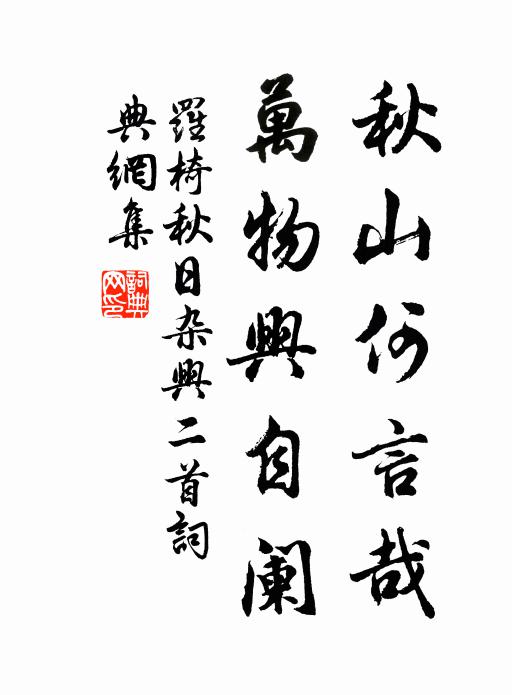 秋山何言哉
萬物興自阑
羅椅秋日杂興二首詞
典網集
詞典
网印